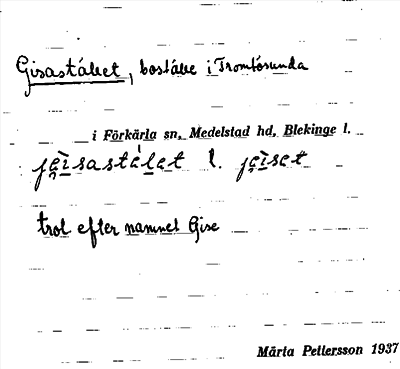 Gisastället, boställe i Tromtösunda
i Förkärla sn, Medelstad hd, Blekinge l.
jęi̇̀sastálet l. jęi̇̀set
trol efter namnet Gise
Märta Pettersson 1937